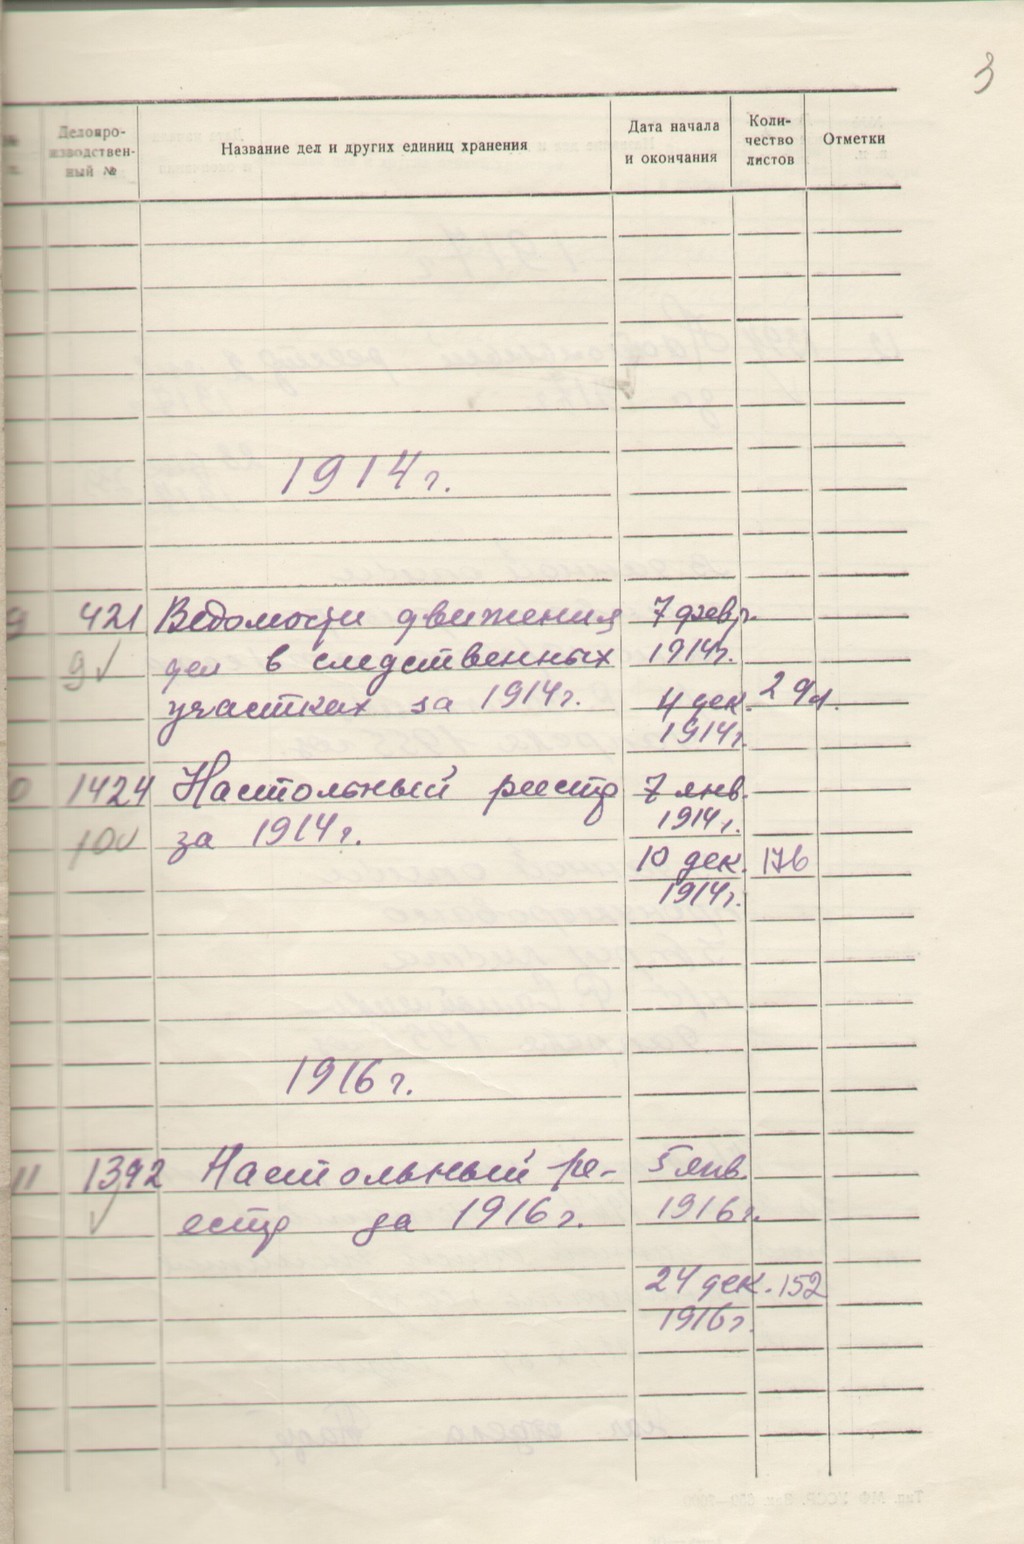 3
Делопро-
изводствен-
ный №
Название дел и других единиц хранения
Дата начала
и окончания
Коли-
чество
листов
Отметки
1914 г.
9 421 Ведомости движения 7 февр.
9✓ дел в следственных 1914 г.
участках за 1914 г. 4 дек. 29 л.
1914 г.
0 1424 Настольный реестр 7 янв.
10✓ за 1914 г. 1914 г.
10 дек. 176
1914 г.
1916 г.
11 1392 Настольный ре- 5 янв.
✓ естр за 1916 г. 1916 г.
24 дек. 152
1916 г.